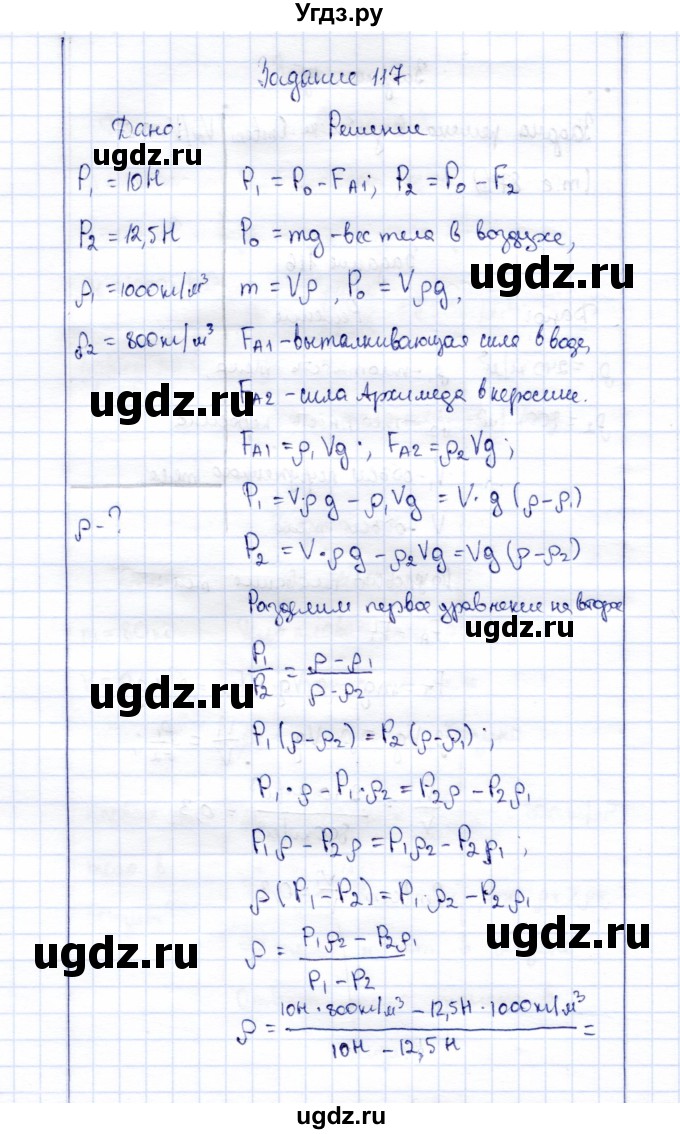 Угдз.ру
Задание 117
Дано:
Решение
P₁ = 10Н
P₂ = 12,5Н
ρ₁ = 1000кг/м³
ρ₂ = 800кг/м³
ρ - ?
P₁ = P₀ - F_A1; P₂ = P₀ - F₂
P₀ = mg - вес тела в воздухе,
m = Vρ, P₀ = Vρg,
F_A1 - выталкивающая сила в воде,
F_A2 - сила Архимеда в керосине.
F_A1 = ρ₁Vg; F_A2 = ρ₂Vg;
P₁ = V·ρg - ρ₁Vg = V·g(ρ-ρ₁)
P₂ = V·ρg - ρ₂Vg = Vg(ρ-ρ₂)
Разделим первое уравнение на второе
P₁/P₂ = (ρ-ρ₁)/(ρ-ρ₂)
P₁(ρ-ρ₂) = P₂(ρ-ρ₁);
P₁·ρ - P₁·ρ₂ = P₂ρ - P₂ρ₁
P₁ρ - P₂ρ = P₁ρ₂ - P₂ρ₁;
ρ(P₁-P₂) = P₁·ρ₂ - P₂ρ₁
ρ = (P₁ρ₂ - P₂ρ₁)/(P₁ - P₂)
ρ = (10Н·800кг/м³ - 12,5Н·1000кг/м³)/(10Н - 12,5Н) =
ugdz.ru
ugdz.ru
ugdz.ru
ugdz.ru
ugdz.ru
ugdz.ru
ugdz.ru
ugdz.ru
ugdz.ru